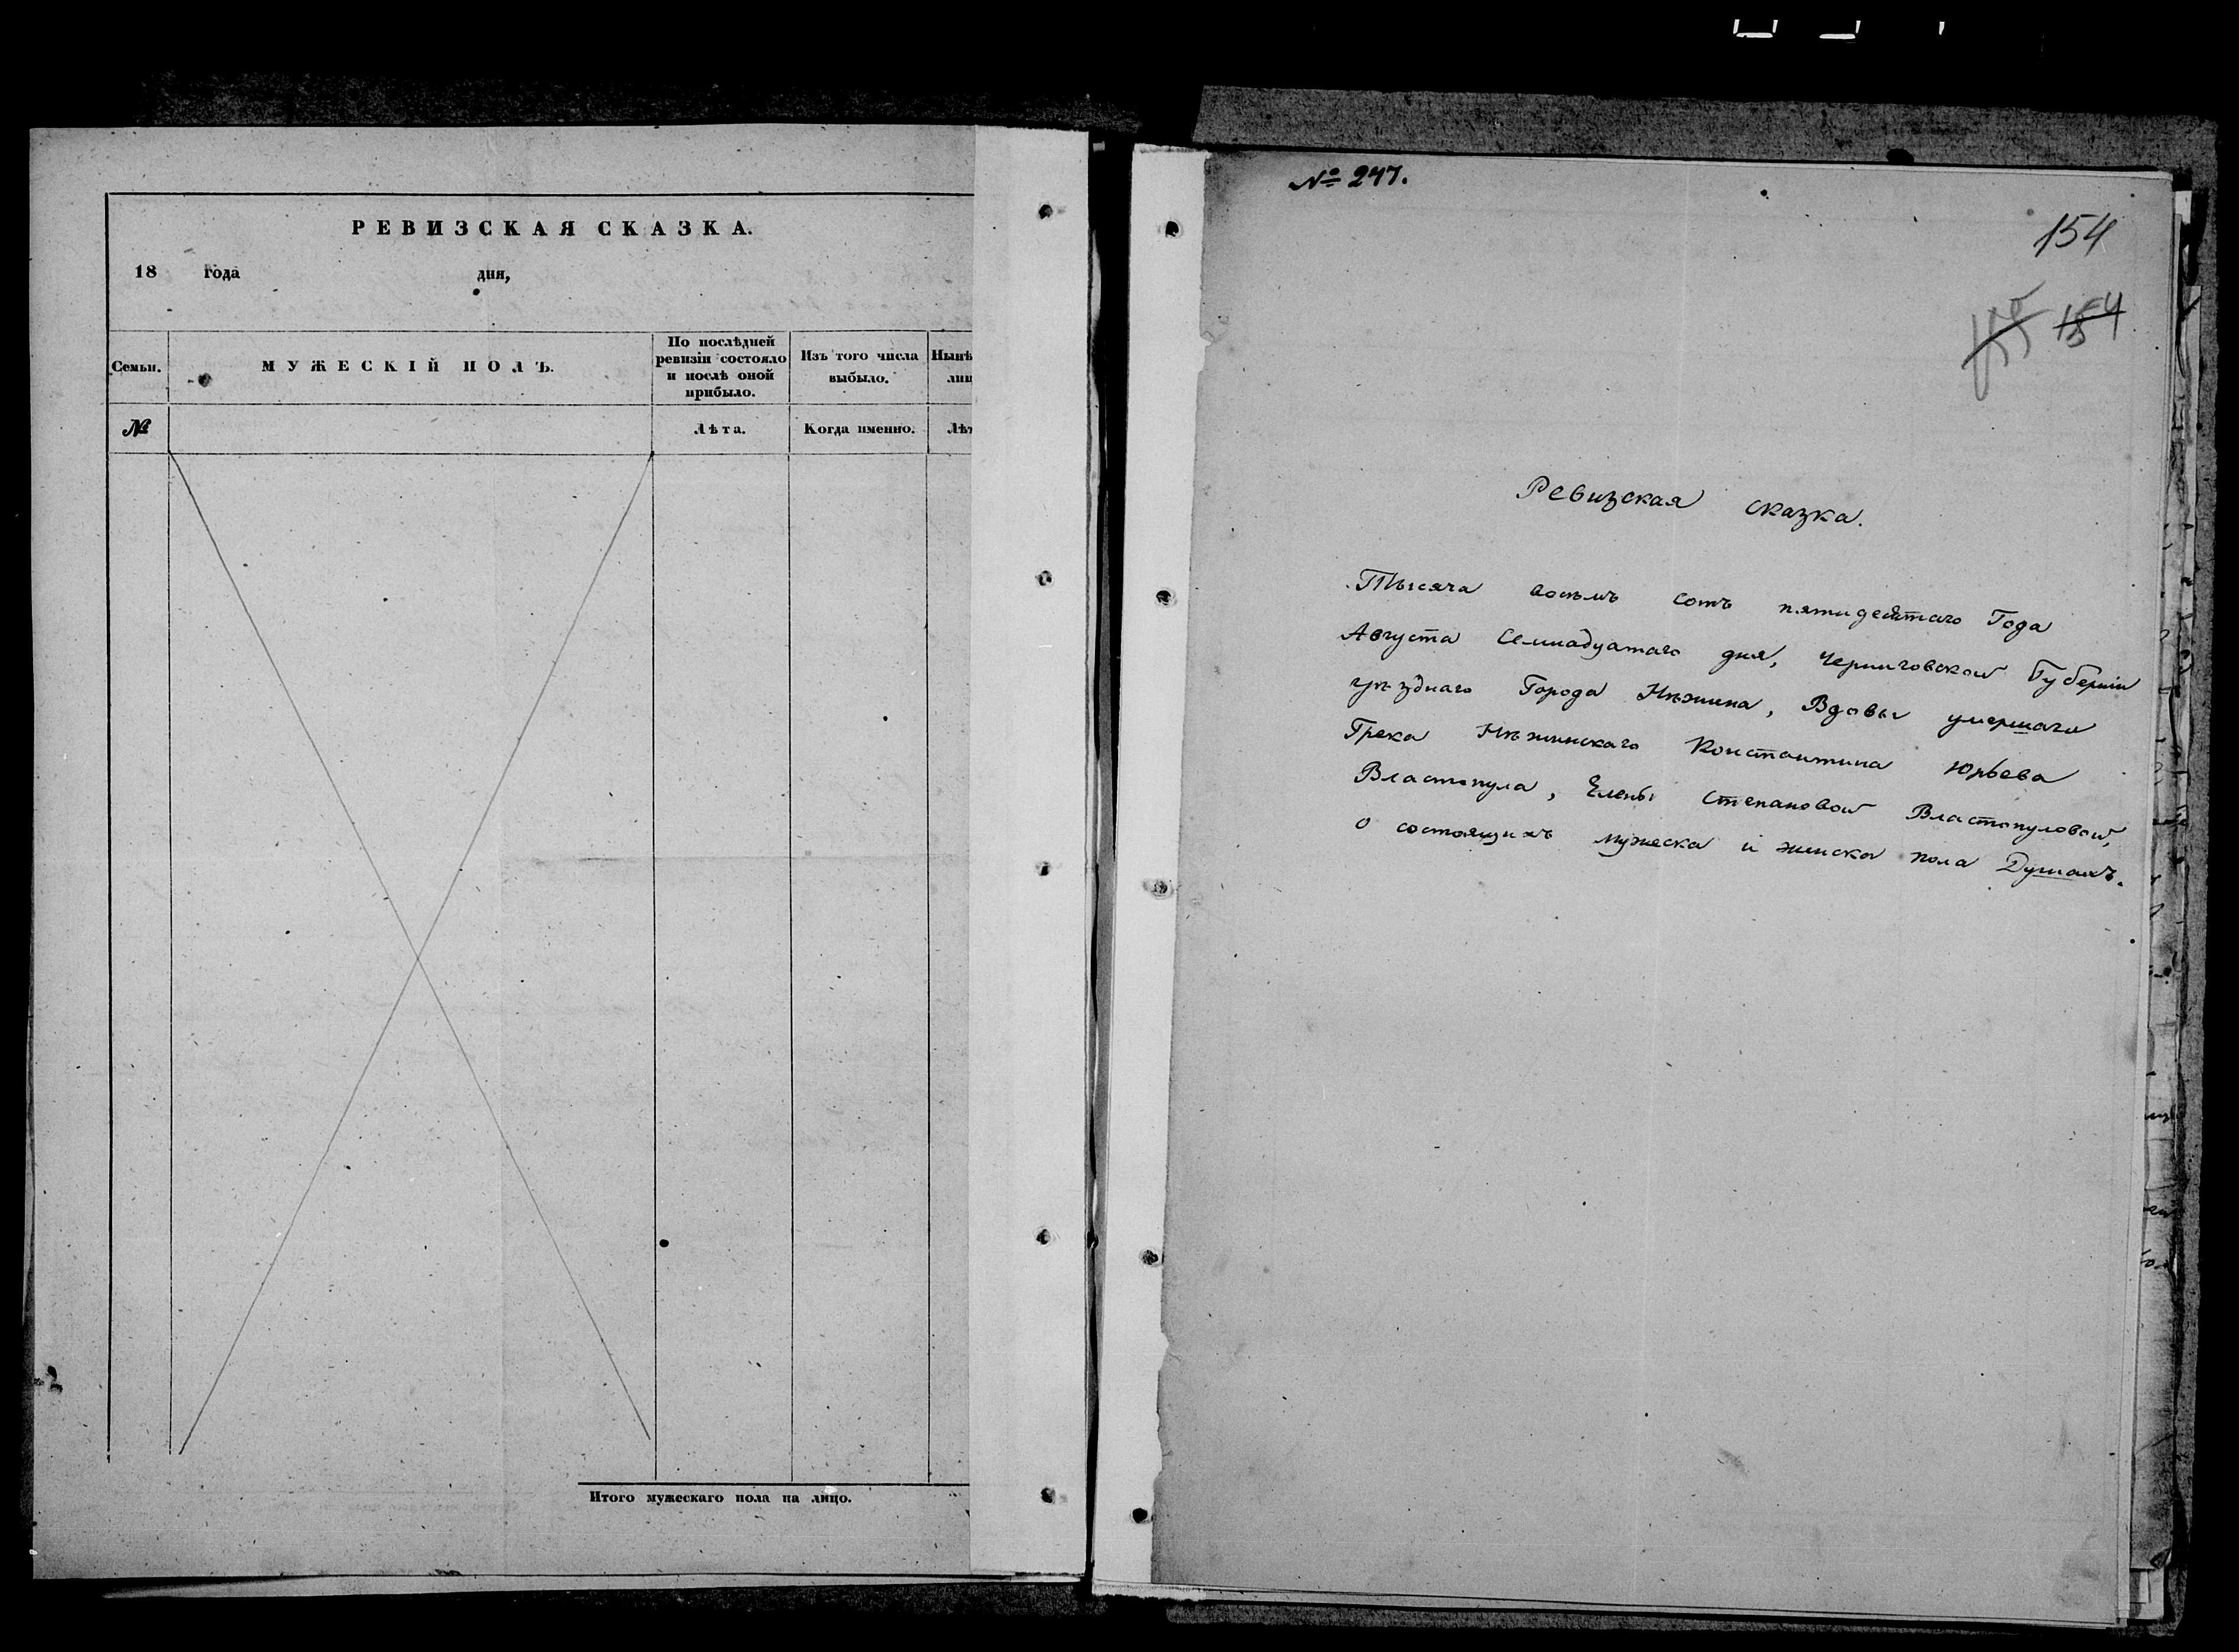 РЕВИЗСКАЯ СКАЗКА.
18 года дня,
Семьи.
МУЖЕСКІЙ ПОЛЪ.
По послѣдней
ревизіи состояло
и послѣ оной
прибыло.
Изъ того числа
выбыло.
Нынѣ
лиц
№
Лѣта.
Когда именно.
Лѣт
Итого мужескаго пола на лицо.
№ 247.
154
155 154
Ревизская сказка.
Тысяча восемь сотъ пятидесятаго Года
Августа Семнадцатаго дня, Черниговской Губерніи
уѣзднаго Города Нѣжина, Вдовы умершаго
Грека Нѣжинскаго Константина Юрьева
Властопула, Елены Степановой Властопуловой,
о состоящихъ мужеска и женска пола Душахъ.